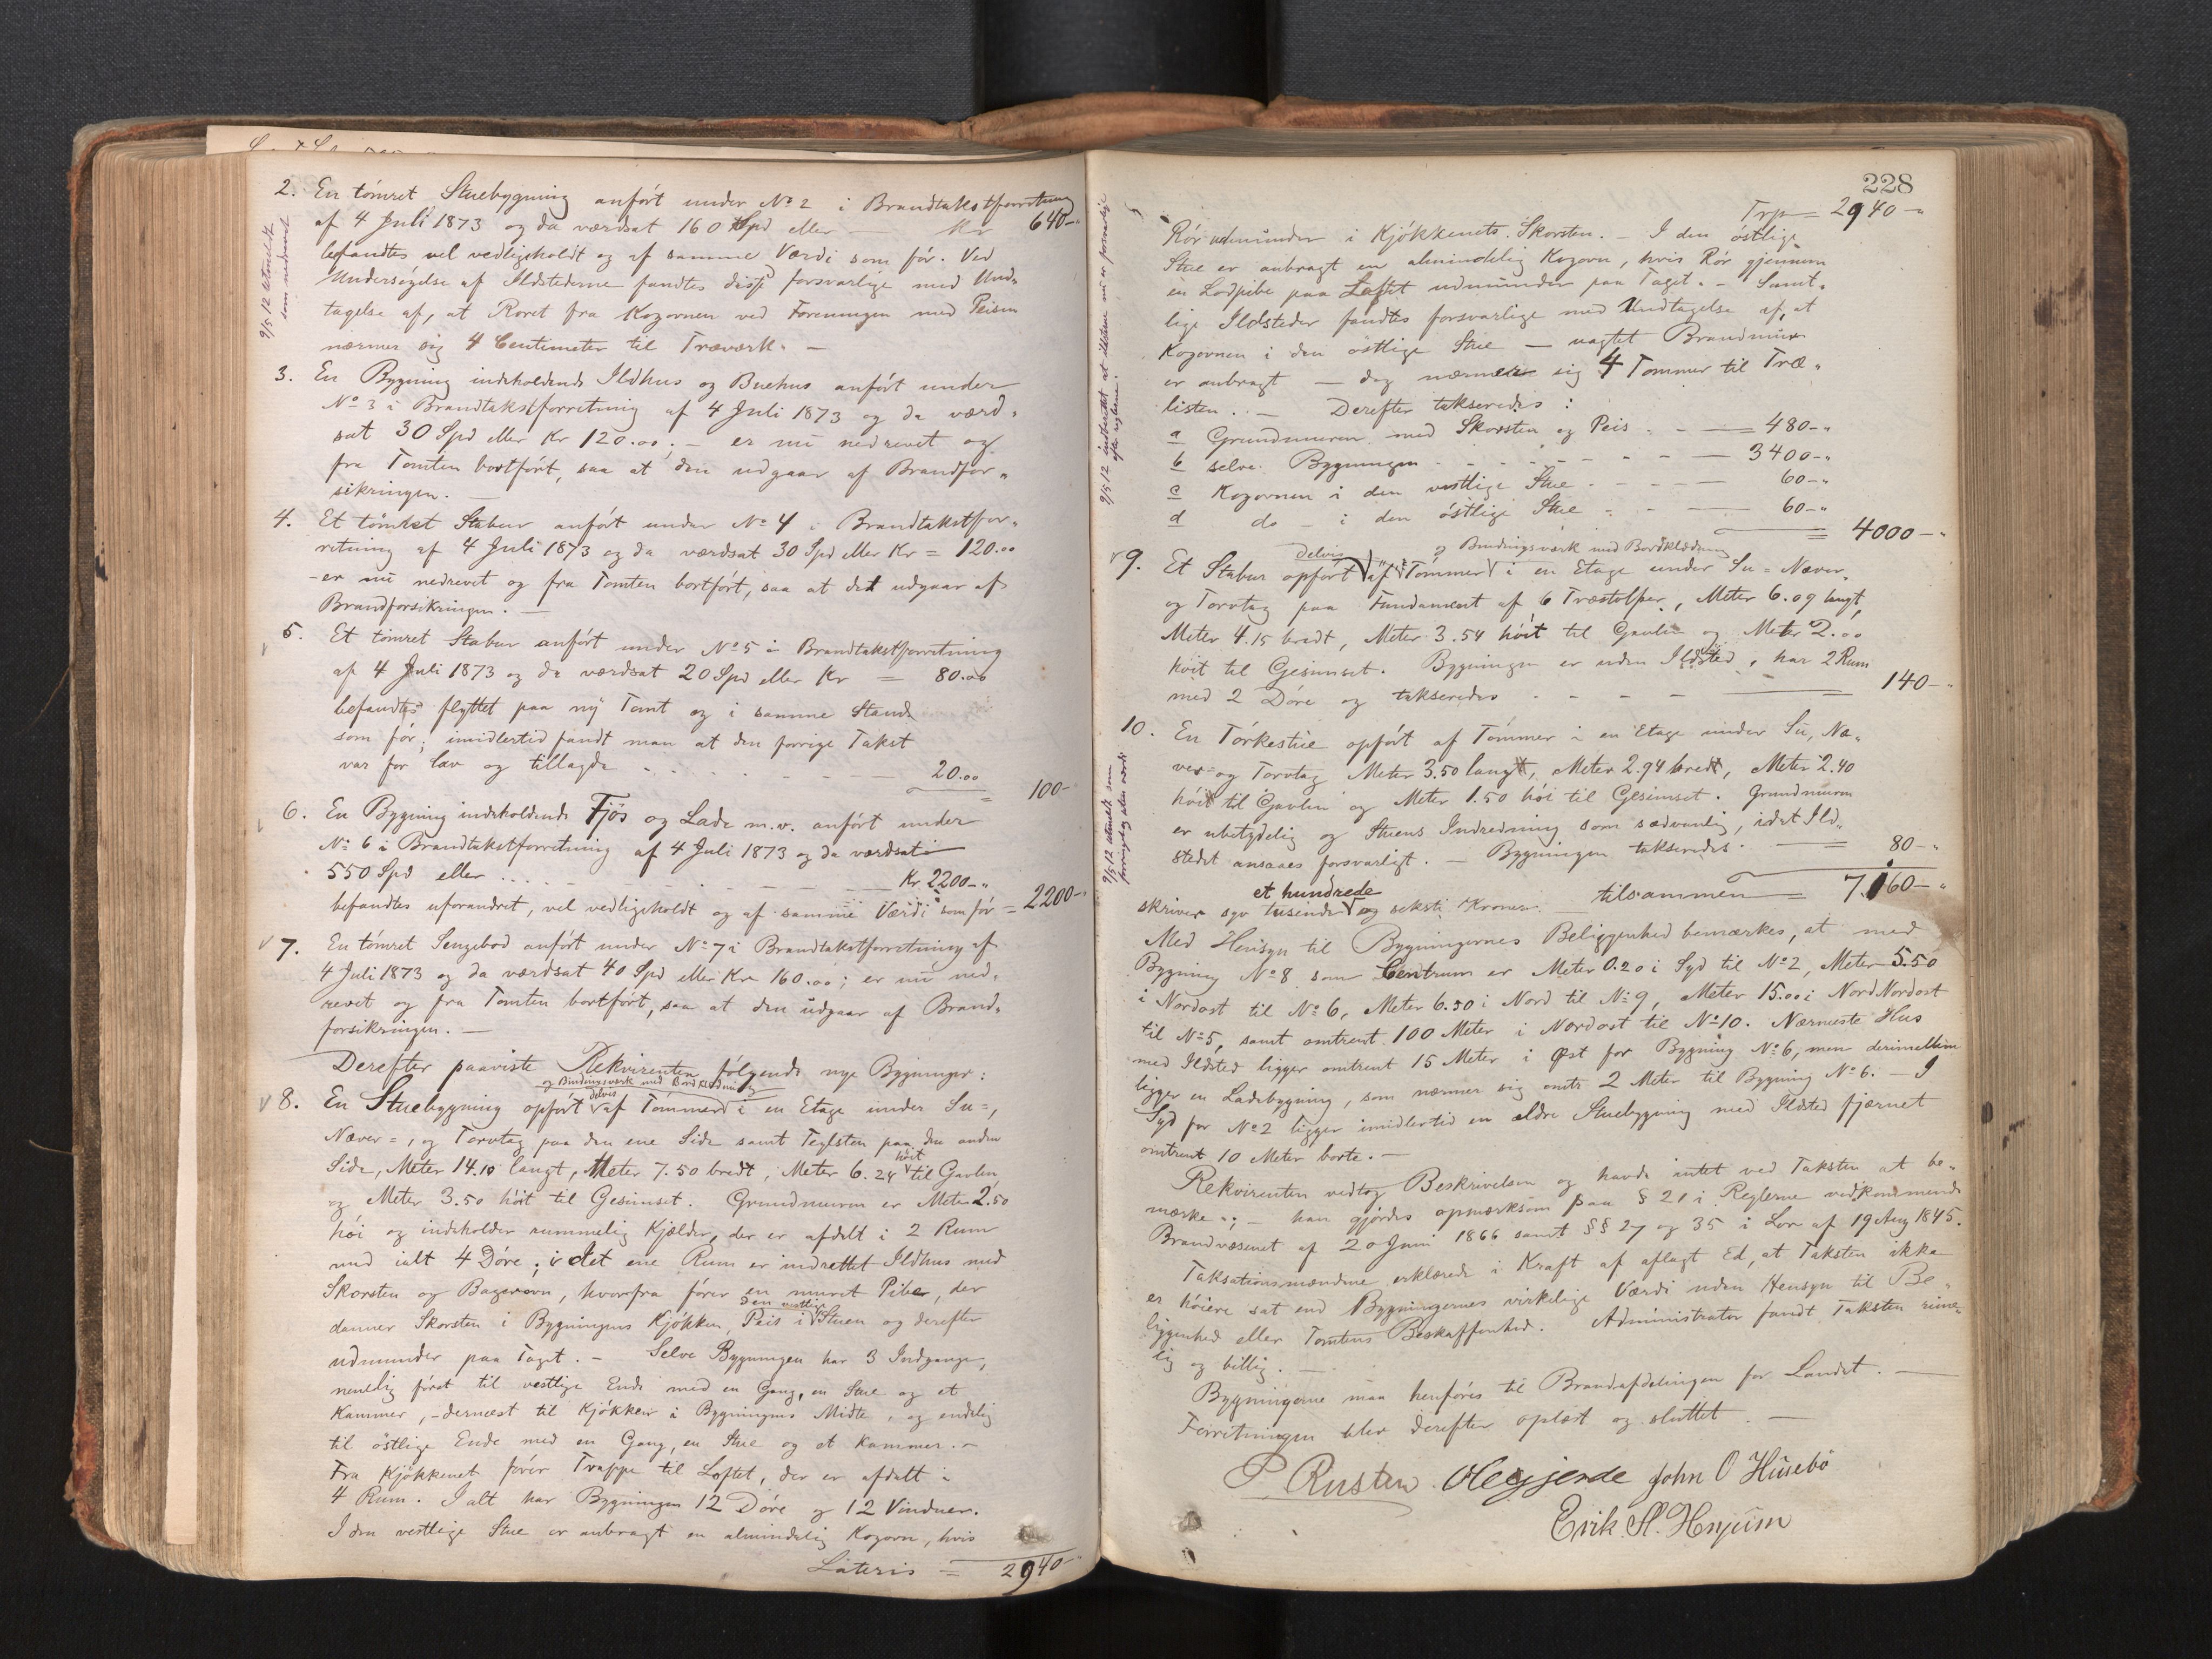 2. En tömret Stuebygning anført under No 2 i Brandtakstforretning
af 4 Juli 1873 og da værdsat 160 Spd eller — Kr 640-"
befandtes vel vedligeholdt og af samme Værdi som før. Ved
Undersøgelse af Ildstederne fandtes disse forsvarlige med Und-
tagelse af, at Röret fra Kogovnen ved Foreningen med Peisen
nærmer sig 4 Centimeter til Træværk. —
9/5 12 utmeldt
som nedrevet
3. En Bygning indeholdende Ildhus og Buehus anført under
No 3 i Brandtakstforretning af 4 Juli 1873 og da værd-
sat 30 Spd eller Kr 120.00. — er nu nedrevet og
fra Tomten bortført, saa at den udgaar af Brandfor-
sikringen. —
4. Et tömret Stabur anført under No 4 i Brandtakstfor-
retning af 4 Juli 1873 og da værdsat 30 Spd eller Kr = 120.00
- er nu nedrevet og fra Tomten bortført, saa at det udgaar af
Brandforsikringen. —
5. Et tömret Stabur anført under No 5 i Brandtakstforretning
af 4 Juli 1873 og da værdsat 20 Spd eller Kr = 80.00
befandtes flyttet paa ny Tomt og i samme Stand
som før; imidlertid fandt man at den forrige Takst
var for lav og tillagde — 20.00
= 100-
6. En Bygning indeholdende Fjös og Lade m.v. anført under
No 6 i Brandtakstforretning af 4 Juli 1873 og da værdsat
550 Spd eller . . . . — Kr 2200-"
befandtes uforandret, vel vedligeholdt og af samme Værdi som før = 2200-"
7. En tömret Sengebod anført under No 7 i Brandtakstforretning af
4 Juli 1873 og da værdsat 40 Spd eller Kr 160.00; er nu ned-
revet og fra Tomten bortført, saa at den udgaar af Brand-
forsikringen. —
Derefter paaviste Rekvirenten følgende nye Bygninger:
og Bindingsværk med Bordklædning
delvis
8. En Stuebygning opført af Tömmer i en Etage under Su-,
Næver-, og Torvtag paa den ene Side samt Teglsten paa den anden
Side, Meter 14.10 langt, Meter 7.50 bredt, Meter 6.24 höit til Gavlen
og Meter 3.50 höit til Gesimset. Grundmuren er Meter 2.50
höi og indeholder rummelig Kjælder, der er afdelt i 2 Rum
med ialt 4 Döre; i det ene Rum er indrettet Ildhus med
Skorsten og Bagerovn, hvorfra förer en muret Pibe, der
danner Skorsten i Bygningens Kjökken, Peis i den vestlige Stuen og derefter
udmunder paa Taget. — Selve Bygningen har 3 Indgange,
nemlig först til vestlige Ende med en Gang, en Stue og et
Kammer, - dernæst til Kjökken i Bygningens Midte, og endelig
til östlige Ende med en Gang, en Stue og et Kammer. —
Fra Kjökkenet förer Trappe til Loftet, der er afdelt i
4 Rum. I alt har Bygningen 12 Döre og 12 Vinduer.
I den vestlige Stue er anbragt en almindelig Kogovn, hvis
Lateris = 2940-"
228
Trp = 2940-"
Rör udmunder i Kjökkenets Skorsten. — I den östlige
Stue er anbragt en almindelig Kogovn, hvis Rör gjennem
en Lodpibe paa Loftet udmunder paa Taget. — Samt-
lige Ildsteder fandtes forsvarlige med Undtagelse af, at
Kogovnen i den östlige Stue — uagtet Brandmur
er anbragt — dog nærmer sig 4 Tommer til Træ-
listen. — Derefter takseredes:
9/5 12 indberettet at ildstene nu er forsvarlige
efter reglerne.
a Grundmuren med Skorsten og Peis — = 480-"
b selve Bygningen — 3400-"
c Kogovnen i den vestlige Stue — 60-"
d do — i den östlige Stue — 60-"
= 4000-"
delvis
og Bindingsværk med Bordklædning
9. Et Stabur opført af Tömmer i en Etage under Su- Næver-
og Torvtag paa Fundament af 6 Træstolper, Meter 6.09 langt,
Meter 4.15 bredt, Meter 3.54 höit til Gavlen og Meter 2.00
höit til Gesimset. Bygningen er uden Ildsted, har 2 Rum
med 2 Döre og takseredes — = 140-"
10. En Törkestue opført af Tömmer i en Etage under Su, Næ-
ver- og Torvtag Meter 3.50 lang, Meter 2.94 bred, Meter 2.40
höi til Gavlen og Meter 1.50 höi til Gesimset. Grundmuren
er ubetydelig og Stuens Indredning som sædvanlig, idet Ild-
stedet ansaaes forsvarligt. — Bygningen takseredes — = 80-"
9/5 12 utmeldt som
forringet og uten værdi
tilsammen = 7.160-"
et hundrede
skriver syv tusinde og seksti Kroner.
Med Hensyn til Bygningernes Beliggenhed bemærkes, at med
Bygning No 8 som Centrum er Meter 0.20 i Syd til No 2, Meter 5.50
i Nordost til No 6, Meter 6.50 i Nord til No 9, Meter 15.00 i Nord Nordost
til No 5, samt omtrent 100 Meter i Nordost til No 10. Nærmeste Hus
med Ildsted ligger omtrent 15 Meter i Øst for Bygning No 6, men derimellem
ligger en Ladebygning, som nærmer sig omtr 2 Meter til Bygning No 6. — I
Syd for No 2 ligger imidlertid en ældre Stuebygning med Ildsted fjernet
omtrent 10 Meter borte. —
Rekvirenten vedtog Beskrivelsen og havde intet ved Taksten at be-
mærke; — han gjordes opmærksom paa § 21 i Reglerne vedkommende
Brandvæsenet af 20 Juni 1866 samt §§ 27 og 35 i Lov af 19 Aug 1845.
Taksationsmændene erklærede i Kraft af aflagt Ed, at Taksten ikke
er höiere sat end Bygningernes virkelige Værdi uden Hensyn til Be-
liggenhed eller Tomtens Beskaffenhed. Administrator fandt Taksten rime-
lig og billig. —
Bygningerne maa henföres til Brandafdelingen for Landet. —
Forretningen blev derefter oplæst og sluttet. —
P Rusten. John O Husebö
Erik Sl. Henjum